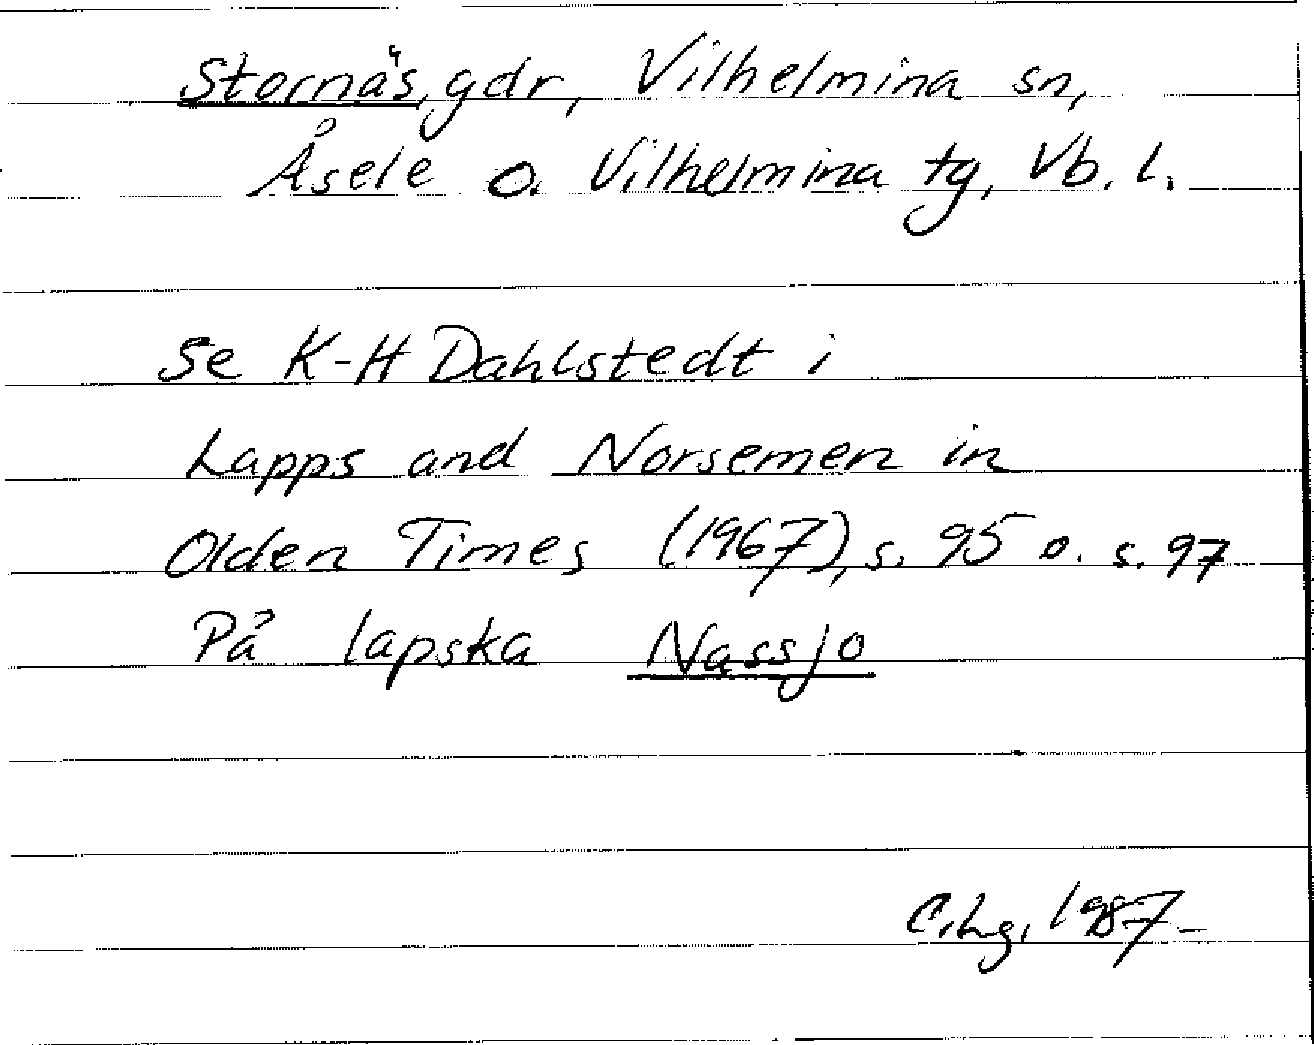 Stornäs, gdr, Vilhelmina sn,
Åsele o. Vilhelmina tg, Vb. l.
Se K-H Dahlstedt i
Lapps and Norsemen in
Olden Times (1967), s. 95 o. s. 97
På lapska Nassjo
C.Lg. 1987-